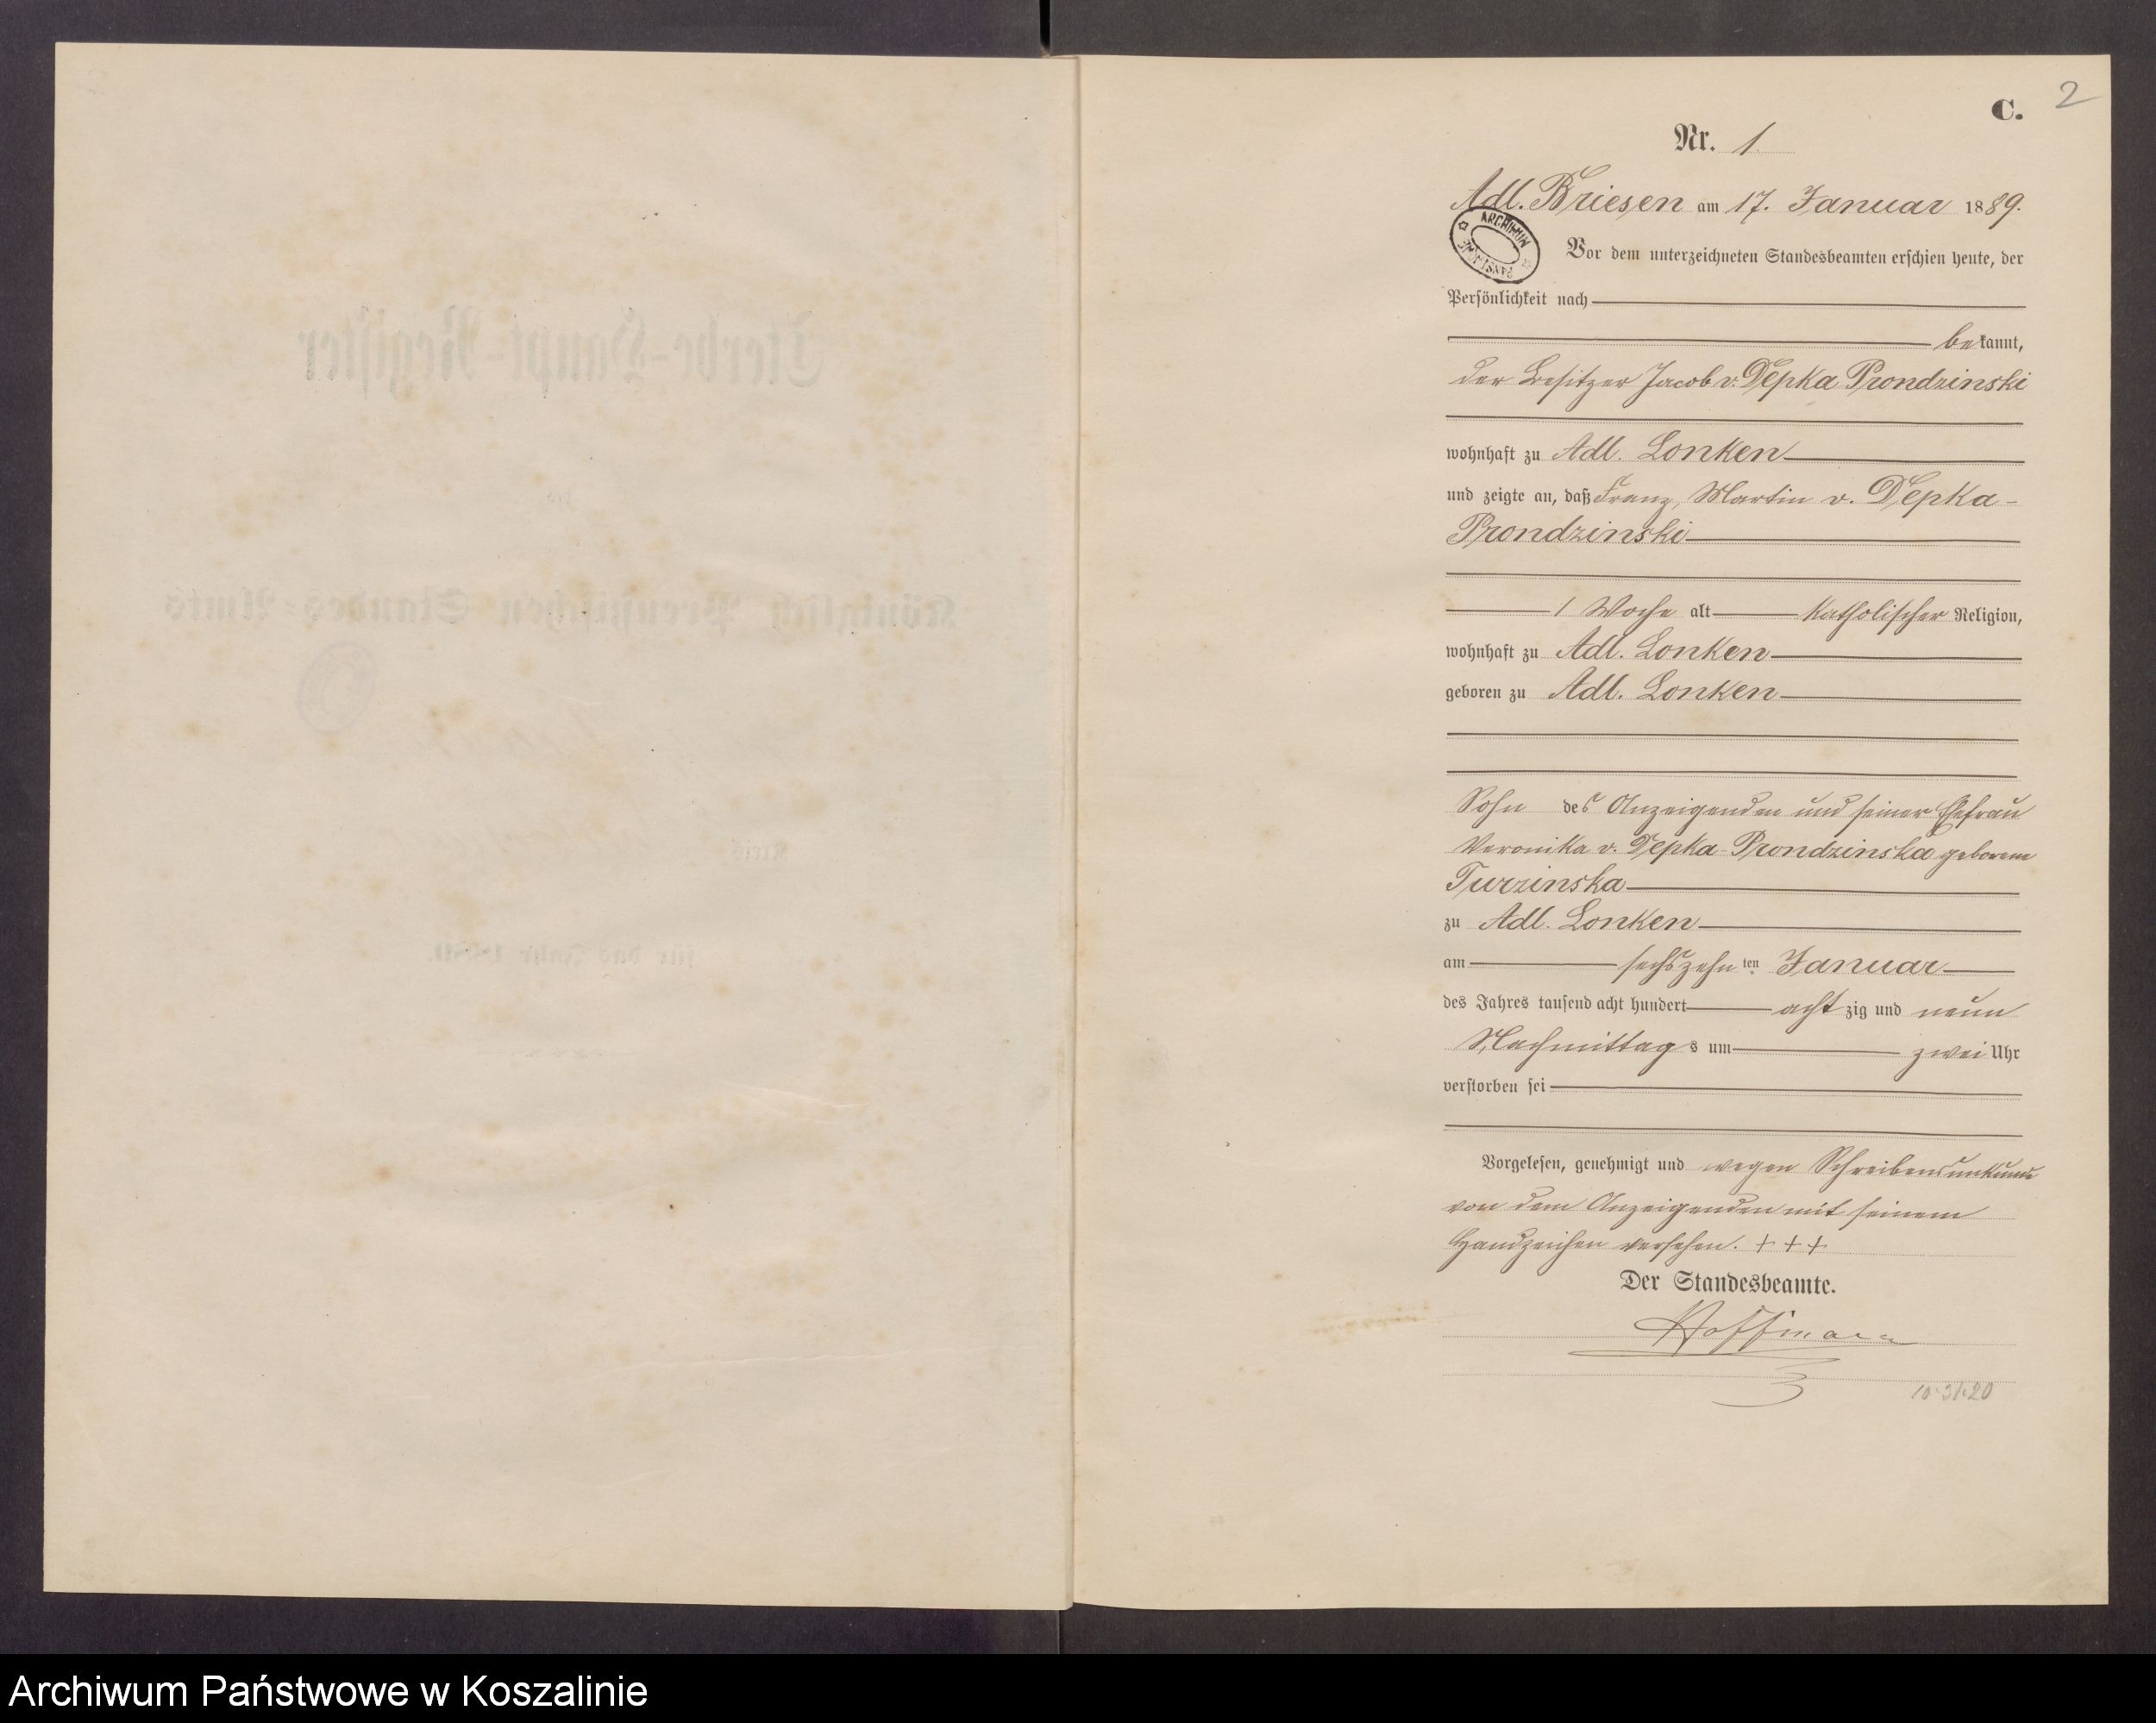 C. 2
Nr. 1
Adl. Briesen am 17. Januar 1889.
ARCHIWUM PAŃSTWOWE
Vor dem unterzeichneten Standesbeamten erschien heute, der
Persönlichkeit nach
bekannt,
der Besitzer Jacob v. Depka Prondzinski
wohnhaft zu Adl. Lonken
und zeigte an, daß Franz, Martin v. Depka-
Prondzinski
1 Woche alt katholischer Religion,
wohnhaft zu Adl. Lonken
geboren zu Adl. Lonken
Sohn des Anzeigenden und seiner Ehefrau
Veronika v. Depka-Prondzinska geborene
Turzinska
zu Adl. Lonken
am sechszehnten Januar
des Jahres tausend acht hundert achtzig und neun
Nachmittags um zwei Uhr
verstorben sei
Vorgelesen, genehmigt und wegen Schreibensunkunde
von dem Anzeigenden mit seinem
Handzeichen versehen. + + +
Der Standesbeamte.
Hoffmann
Sterbe-Haupt-Register
des
Königlich Preußischen Standes-Amts
Kreis
für das Jahr 1889.
Archiwum Państwowe w Koszalinie